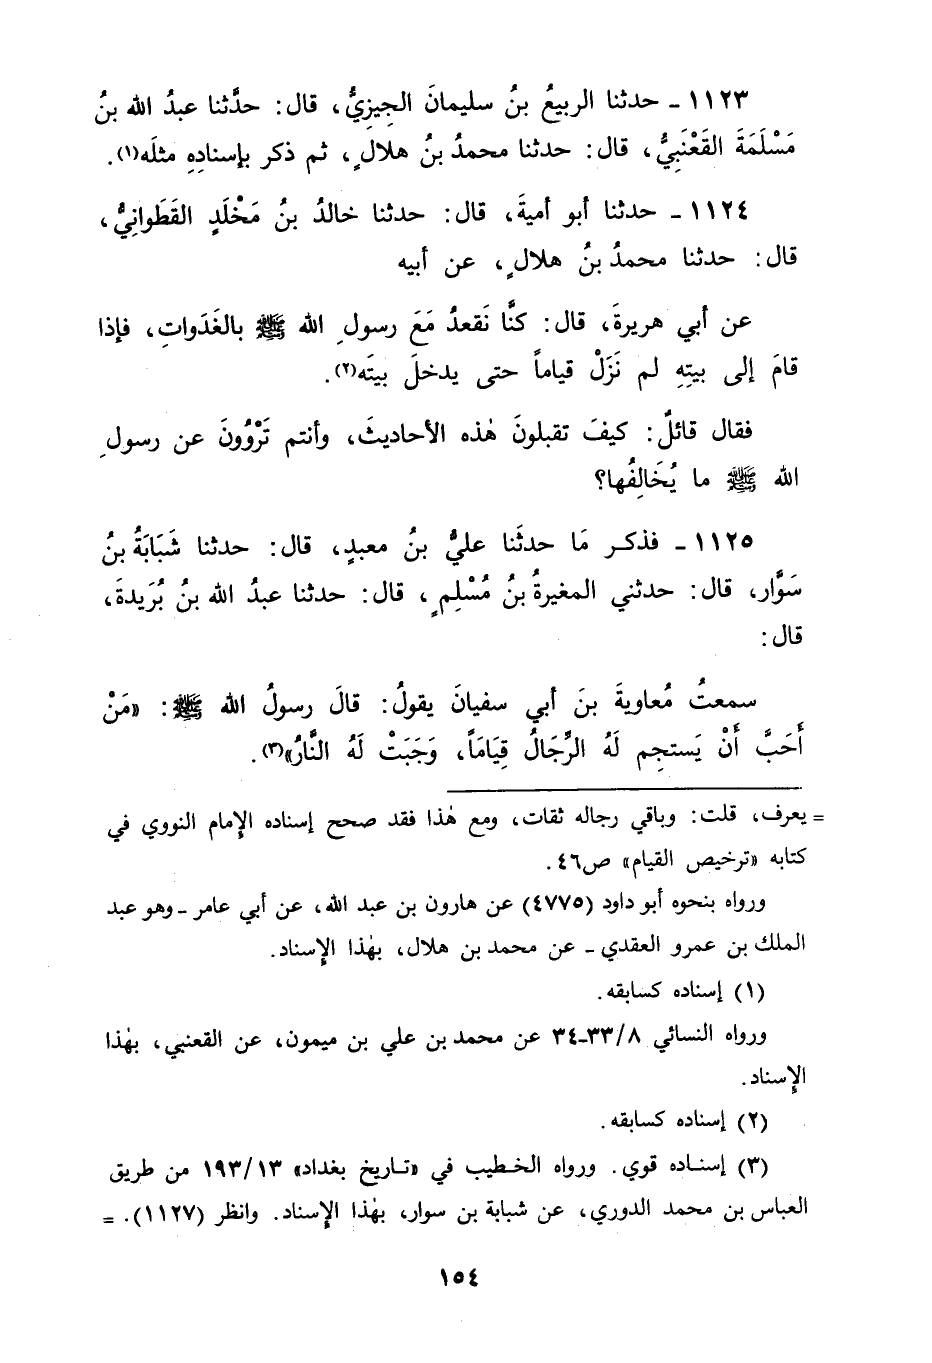 ١١٢٣ ـ حدثنا الربيعُ بنُ سليمانَ الجِيزِيُّ، قال: حدَّثنا عبدُ الله بنُ
مَسْلَمَةَ القَعْنَبِيُّ، قال: حدثنا محمدُ بنُ هلالٍ، ثم ذكر بإسنادِهِ مثلَه(١).
١١٢٤ ـ حدثنا أبو أميةَ، قال: حدثنا خالدُ بنُ مَخْلَدٍ القَطَوانِيُّ،
قال: حدثنا محمدُ بنُ هلالٍ، عن أبيه
عن أبي هريرةَ، قال: كنَّا نَقعدُ مَعَ رسولِ الله ﷺ بالغَدَواتِ، فإذا
قامَ إلى بيتِهِ لم نَزَلْ قياماً حتى يدخلَ بيتَه(٢).
فقال قائلٌ: كيفَ تقبلونَ هٰذه الأحاديثَ، وأنتم تَرْوُونَ عن رسولِ
الله ﷺ ما يُخَالِفُها؟
١١٢٥ ـ فذكر مَا حدثَنا عليُّ بنُ معبدٍ، قال: حدثنا شَبَابَةُ بنُ
سَوَّار، قال: حدثني المغيرةُ بنُ مُسْلِمٍ، قال: حدثنا عبدُ الله بنُ بُرَيدةَ،
قال:
سمعتُ مُعاويةَ بنَ أبي سفيانَ يقولُ: قالَ رسولُ الله ﷺ: «مَنْ
أَحَبَّ أَنْ يَستجِم لَهُ الرِّجَالُ قِيَامَاً، وَجَبَتْ لَهُ النَّارُ»(٣).
= يعرف، قلت: وباقي رجاله ثقات، ومع هٰذا فقد صحح إسناده الإمام النووي في
كتابه «ترخيص القيام» ص٤٦.
ورواه بنحوه أبو داود (٤٧٧٥) عن هارون بن عبد الله، عن أبي عامر ـ وهو عبد
الملك بن عمرو العقدي ـ عن محمد بن هلال، بهٰذا الإسناد.
(١) إسناده كسابقه.
ورواه النسائي ٣٣/٨ـ٣٤ عن محمد بن علي بن ميمون، عن القعنبي، بهٰذا
الإسناد.
(٢) إسناده كسابقه.
(٣) إسناده قوي. ورواه الخطيب في «تاريخ بغداد» ١٩٣/١٣ من طريق
العباس بن محمد الدوري، عن شبابة بن سوار، بهٰذا الإسناد. وانظر (١١٢٧). =
١٥٤